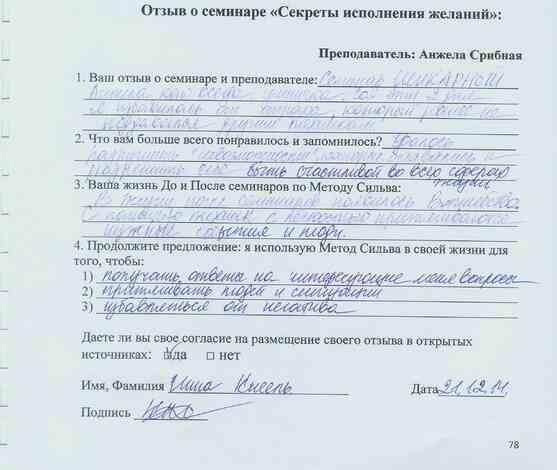 Отзыв о семинаре «Секреты исполнения желаний»:
Преподаватель: Анжела Срибная
1. Ваш отзыв о семинаре и преподавателе: Семинар ШИКАРНЫЙ
Анжела как всегда За эти 2 дня
я от страха, который ранее не
другими
2. Что вам больше всего понравилось и запомнилось? Удалось
разрешить себе быть счастливой во всех сферах
жизни
3. Ваша жизнь До и После семинаров по Методу Сильва:
В жизни после семинаров появилось Волшебство.
С помощью техник с лёгкостью притягиваются
нужные события и люди.
4. Продолжите предложение: я использую Метод Сильва в своей жизни для
того, чтобы:
1) получать ответы на интересующие меня вопросы
2) притягивать людей и ситуации
3) избавляться от негатива
Даете ли вы свое согласие на размещение своего отзыва в открытых
источниках: да нет
Имя, Фамилия Инна Кисель Дата 21.12.14.
Подпись
78